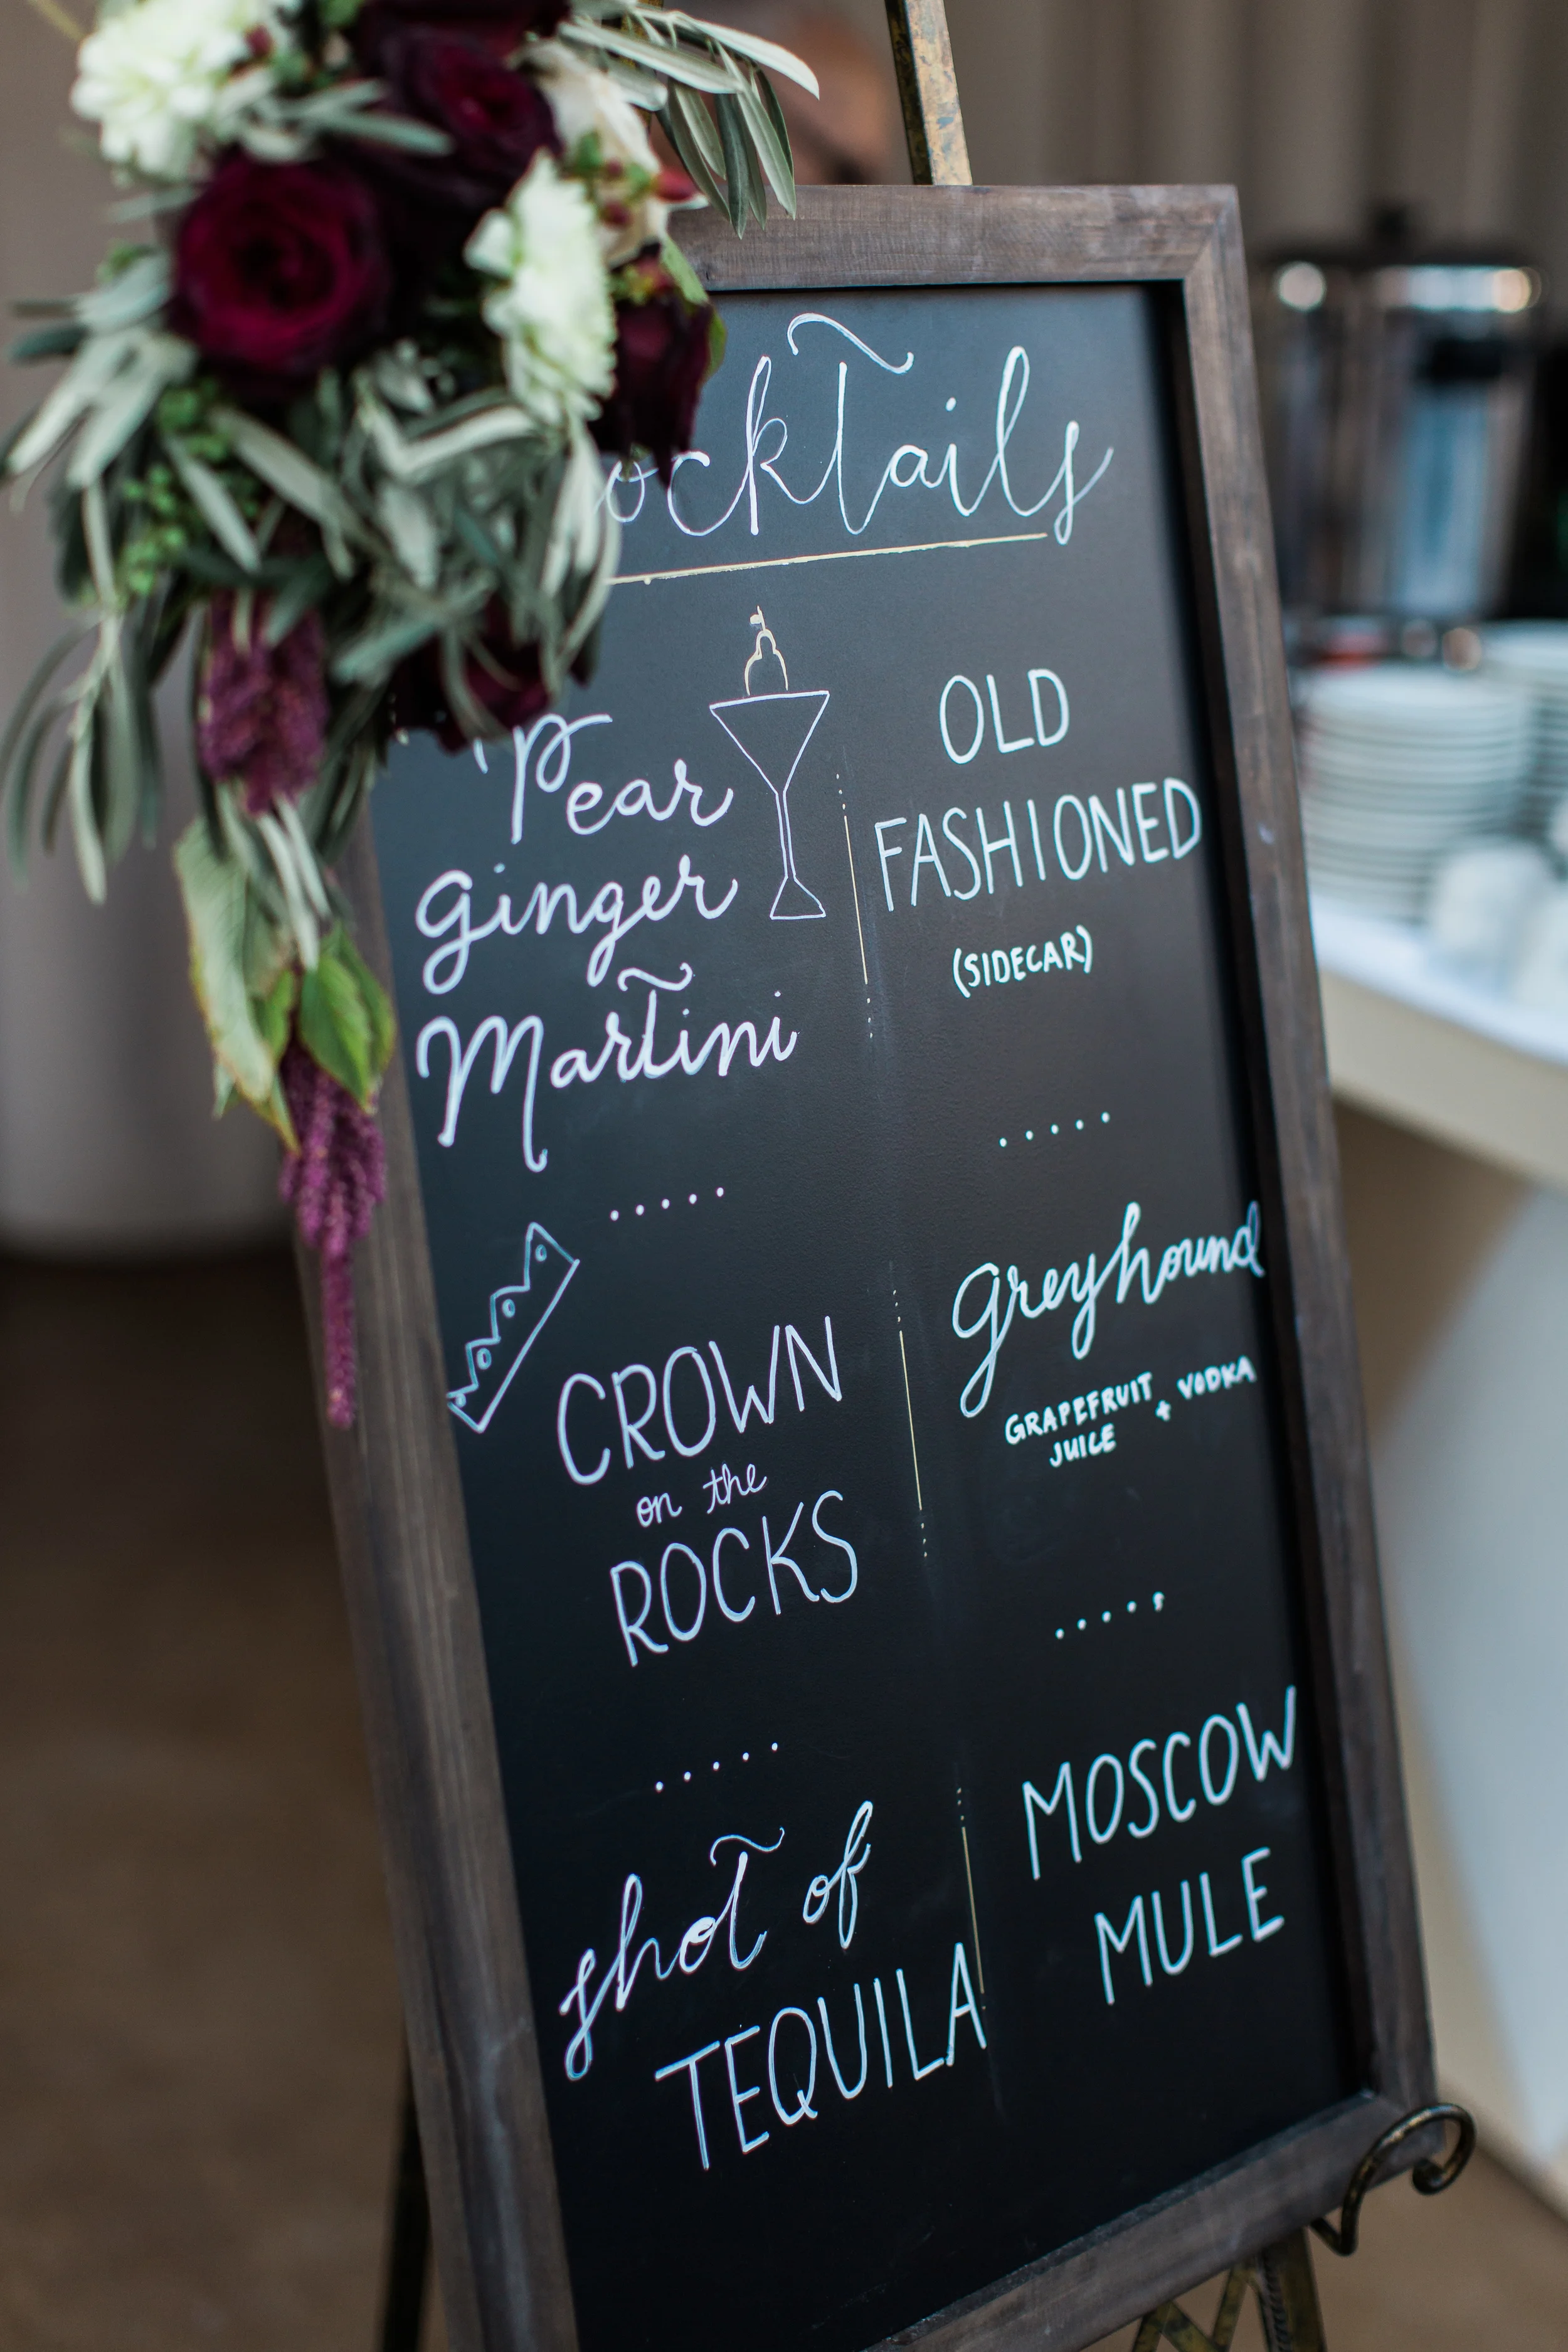 ocktails
Pear
ginger
Martini
CROWN
on the
ROCKS
shot of
TEQUILA
OLD
FASHIONED
(SIDECAR)
Greyhound
GRAPEFRUIT + VODKA
JUICE
MOSCOW
MULE